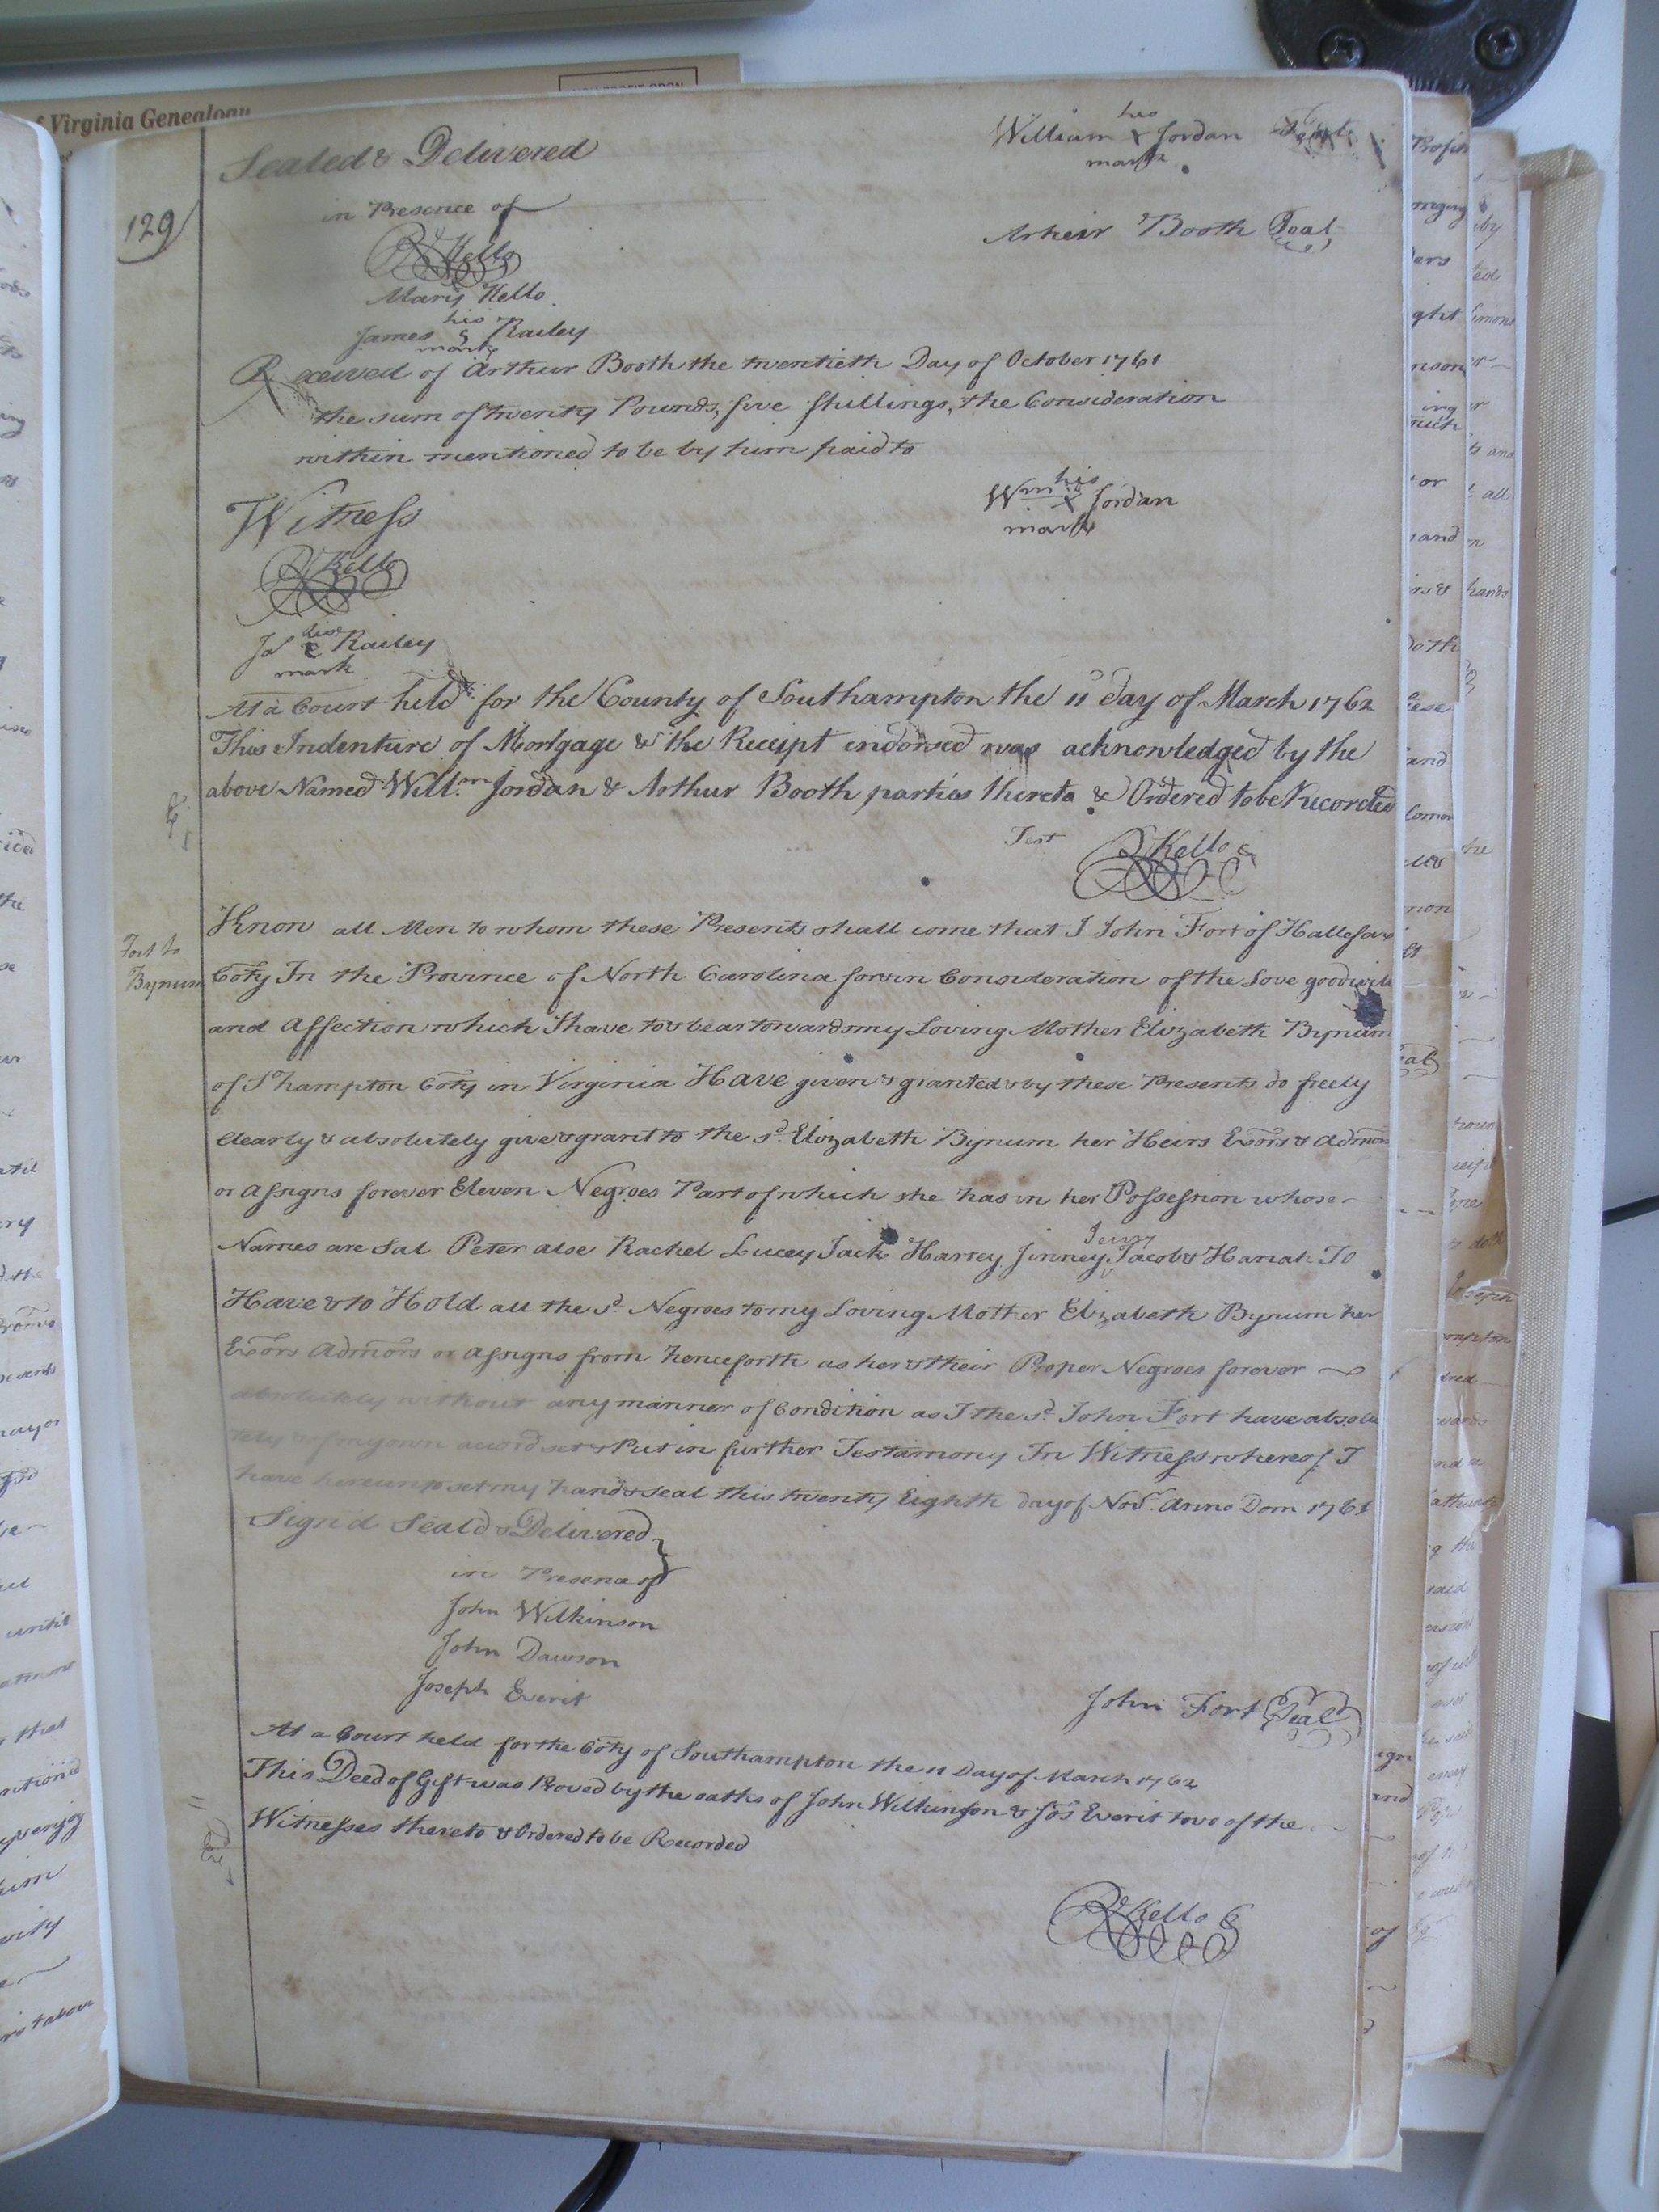 Virginia Genealogy
129
Sealed & Delivered
William his X mark Jordan Seal
in Presence of
Arthur Booth Seal
Rd Kello
Mary Kello
James his mark Railey
Received of Arthur Booth the twentieth Day of October 1761
the sum of twenty Pounds, five shillings, the Consideration
within mentioned to be by him paid to
Witness
Wm his X mark Jordan
Rd Kello
Jas his mark Railey
At a Court held for the County of Southampton the 11th day of March 1762
This Indenture of Mortgage & the Receipt endorsed was acknowledged by the
above Named Willm Jordan & Arthur Booth parties thereto & Ordered to be Recorded
Test
Rd Kello
Fort to
Bynum
Know all Men to whom these Presents shall come that I John Fort of Hallefax
Coty In the Province of North Carolina for & in Consideration of the Love goodwill
and Affection which I have to & bear towards my Loving Mother Elizabeth Bynum
of S'hampton Coty in Virginia Have given & granted & by these Presents do freely
Clearly & absolutely give & grant to the sd. Elizabeth Bynum her Heirs Exors & Admors
or Assigns forever Eleven Negroes Part of which she has in her Possession whose
Names are Sal Peter also Rachel Lucey Jack Harrey Jinney, Jacob & Hanah To
Have & to Hold all the sd. Negroes to my Loving Mother Elizabeth Bynum her
Exors Admors or Assigns from henceforth as her & their Proper Negroes forever
absolutely without any manner of Condition as I the sd. John Fort have absolu
tely & of my own accord set & Put in further Testamony In Witness whereof I
have hereunto set my hand & seal this twenty Eighth day of Nov. Anno Dom 1761
Signd Seald & Delivered
in Presence of
John Wilkinson
John Dawson
Joseph Everit
John Fort Seal
At a Court held for the Coty of Southampton the 11 Day of March 1762
This Deed of Gift was Proved by the oaths of John Wilkinson & Jos Everit two of the
Witnesses thereto & Ordered to be Recorded
Rd Kello